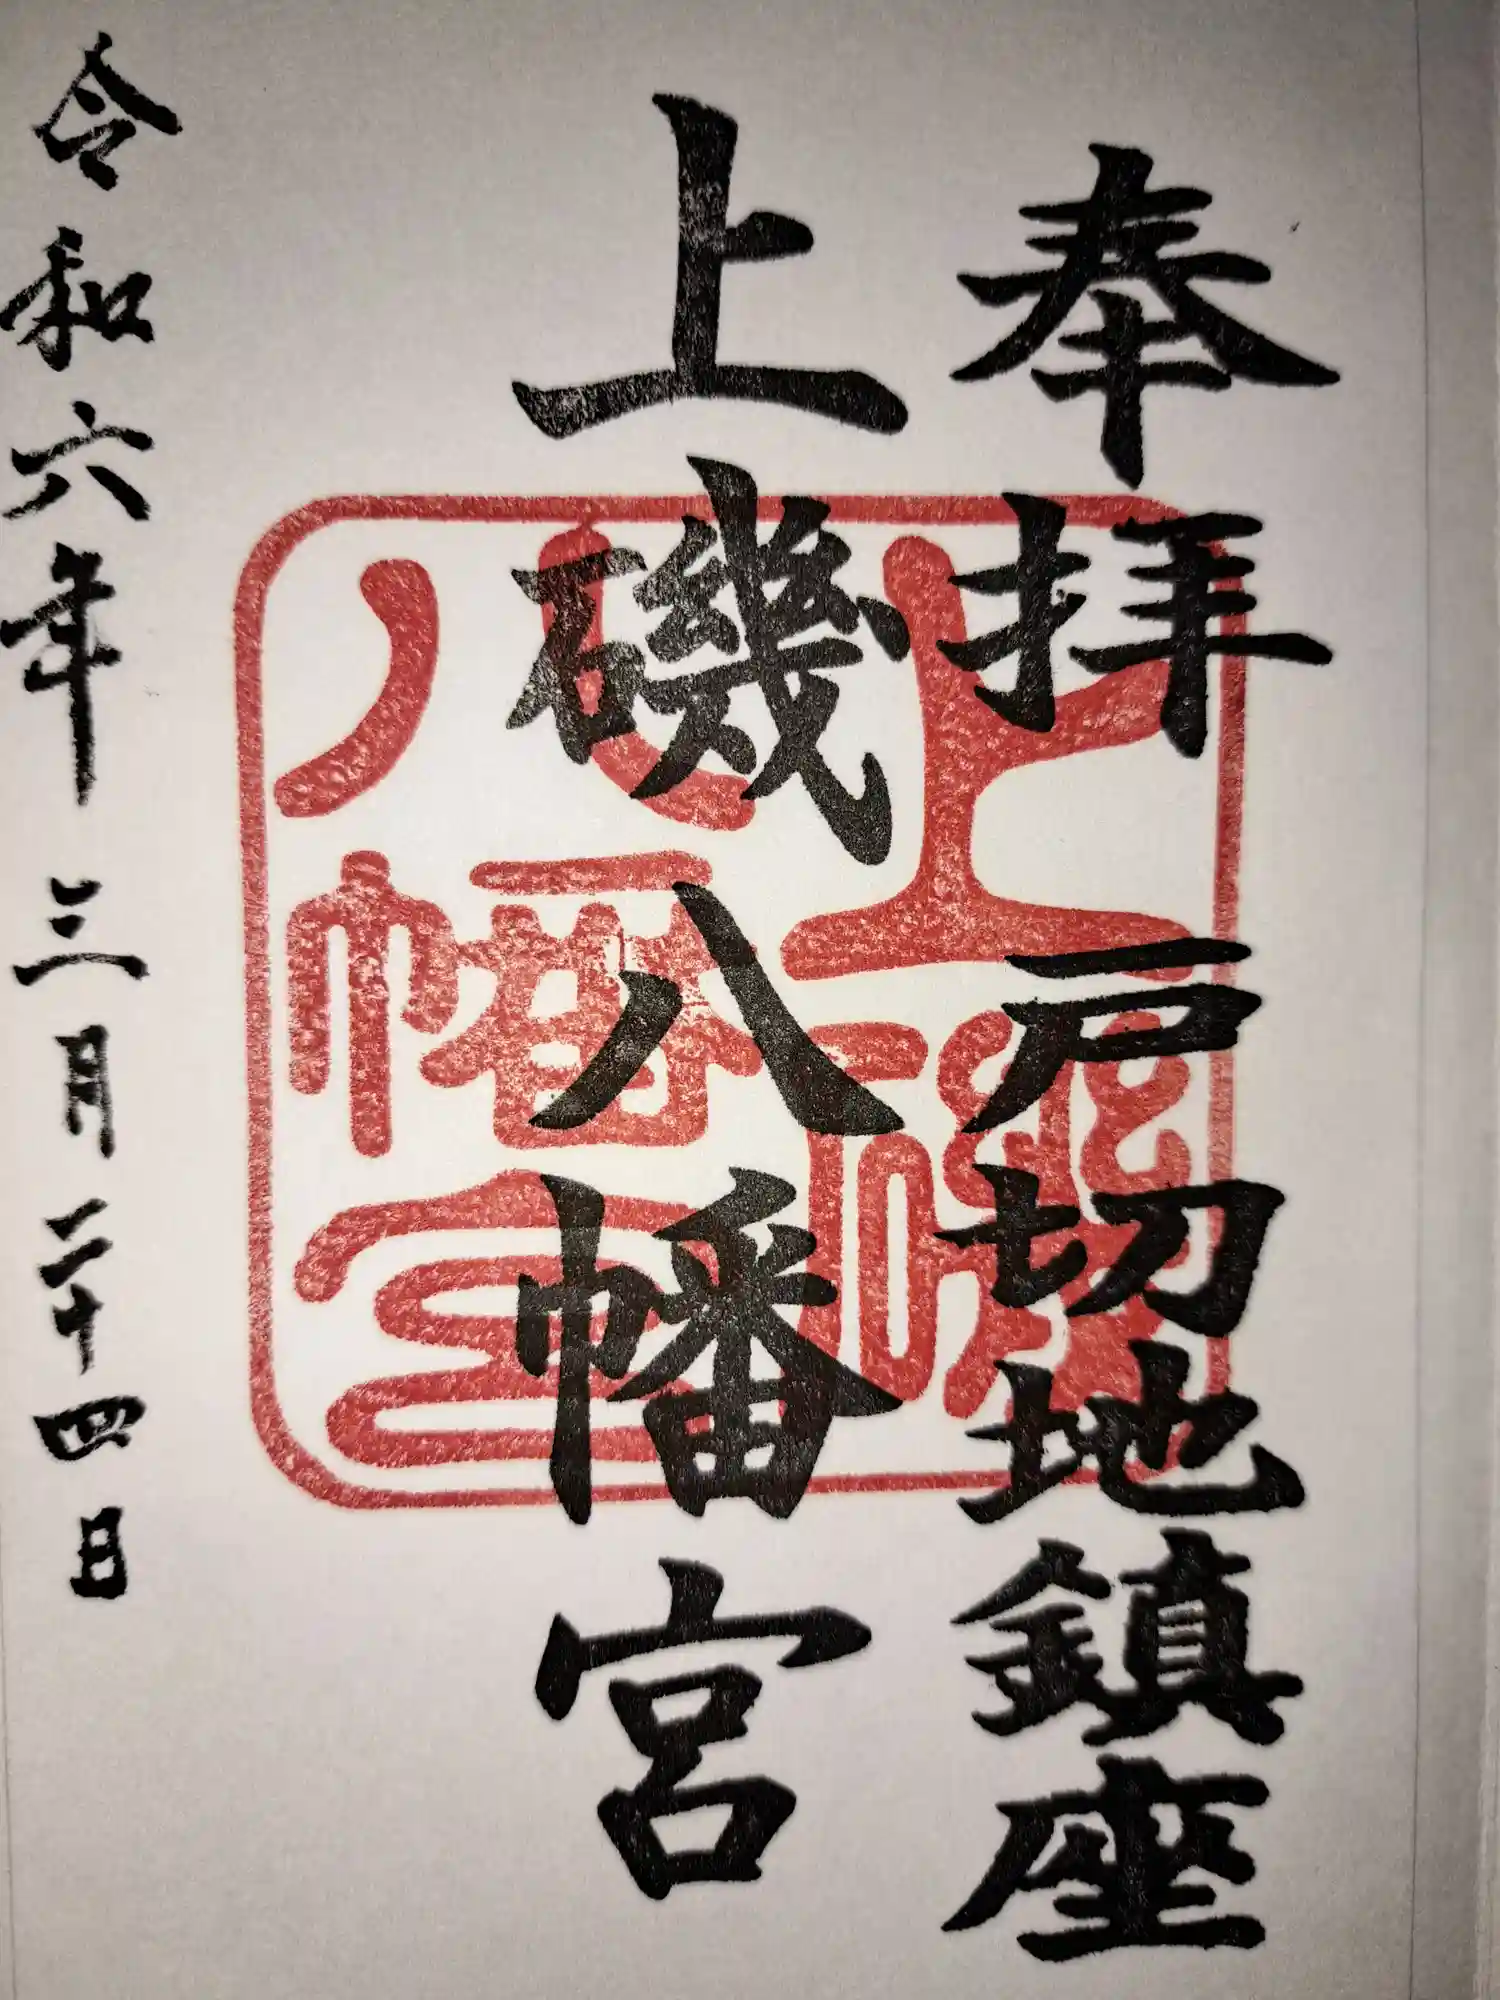 奉拝 戸切地鎮座
上磯八幡宮
上磯
八幡宮
令和六年三月二十四日